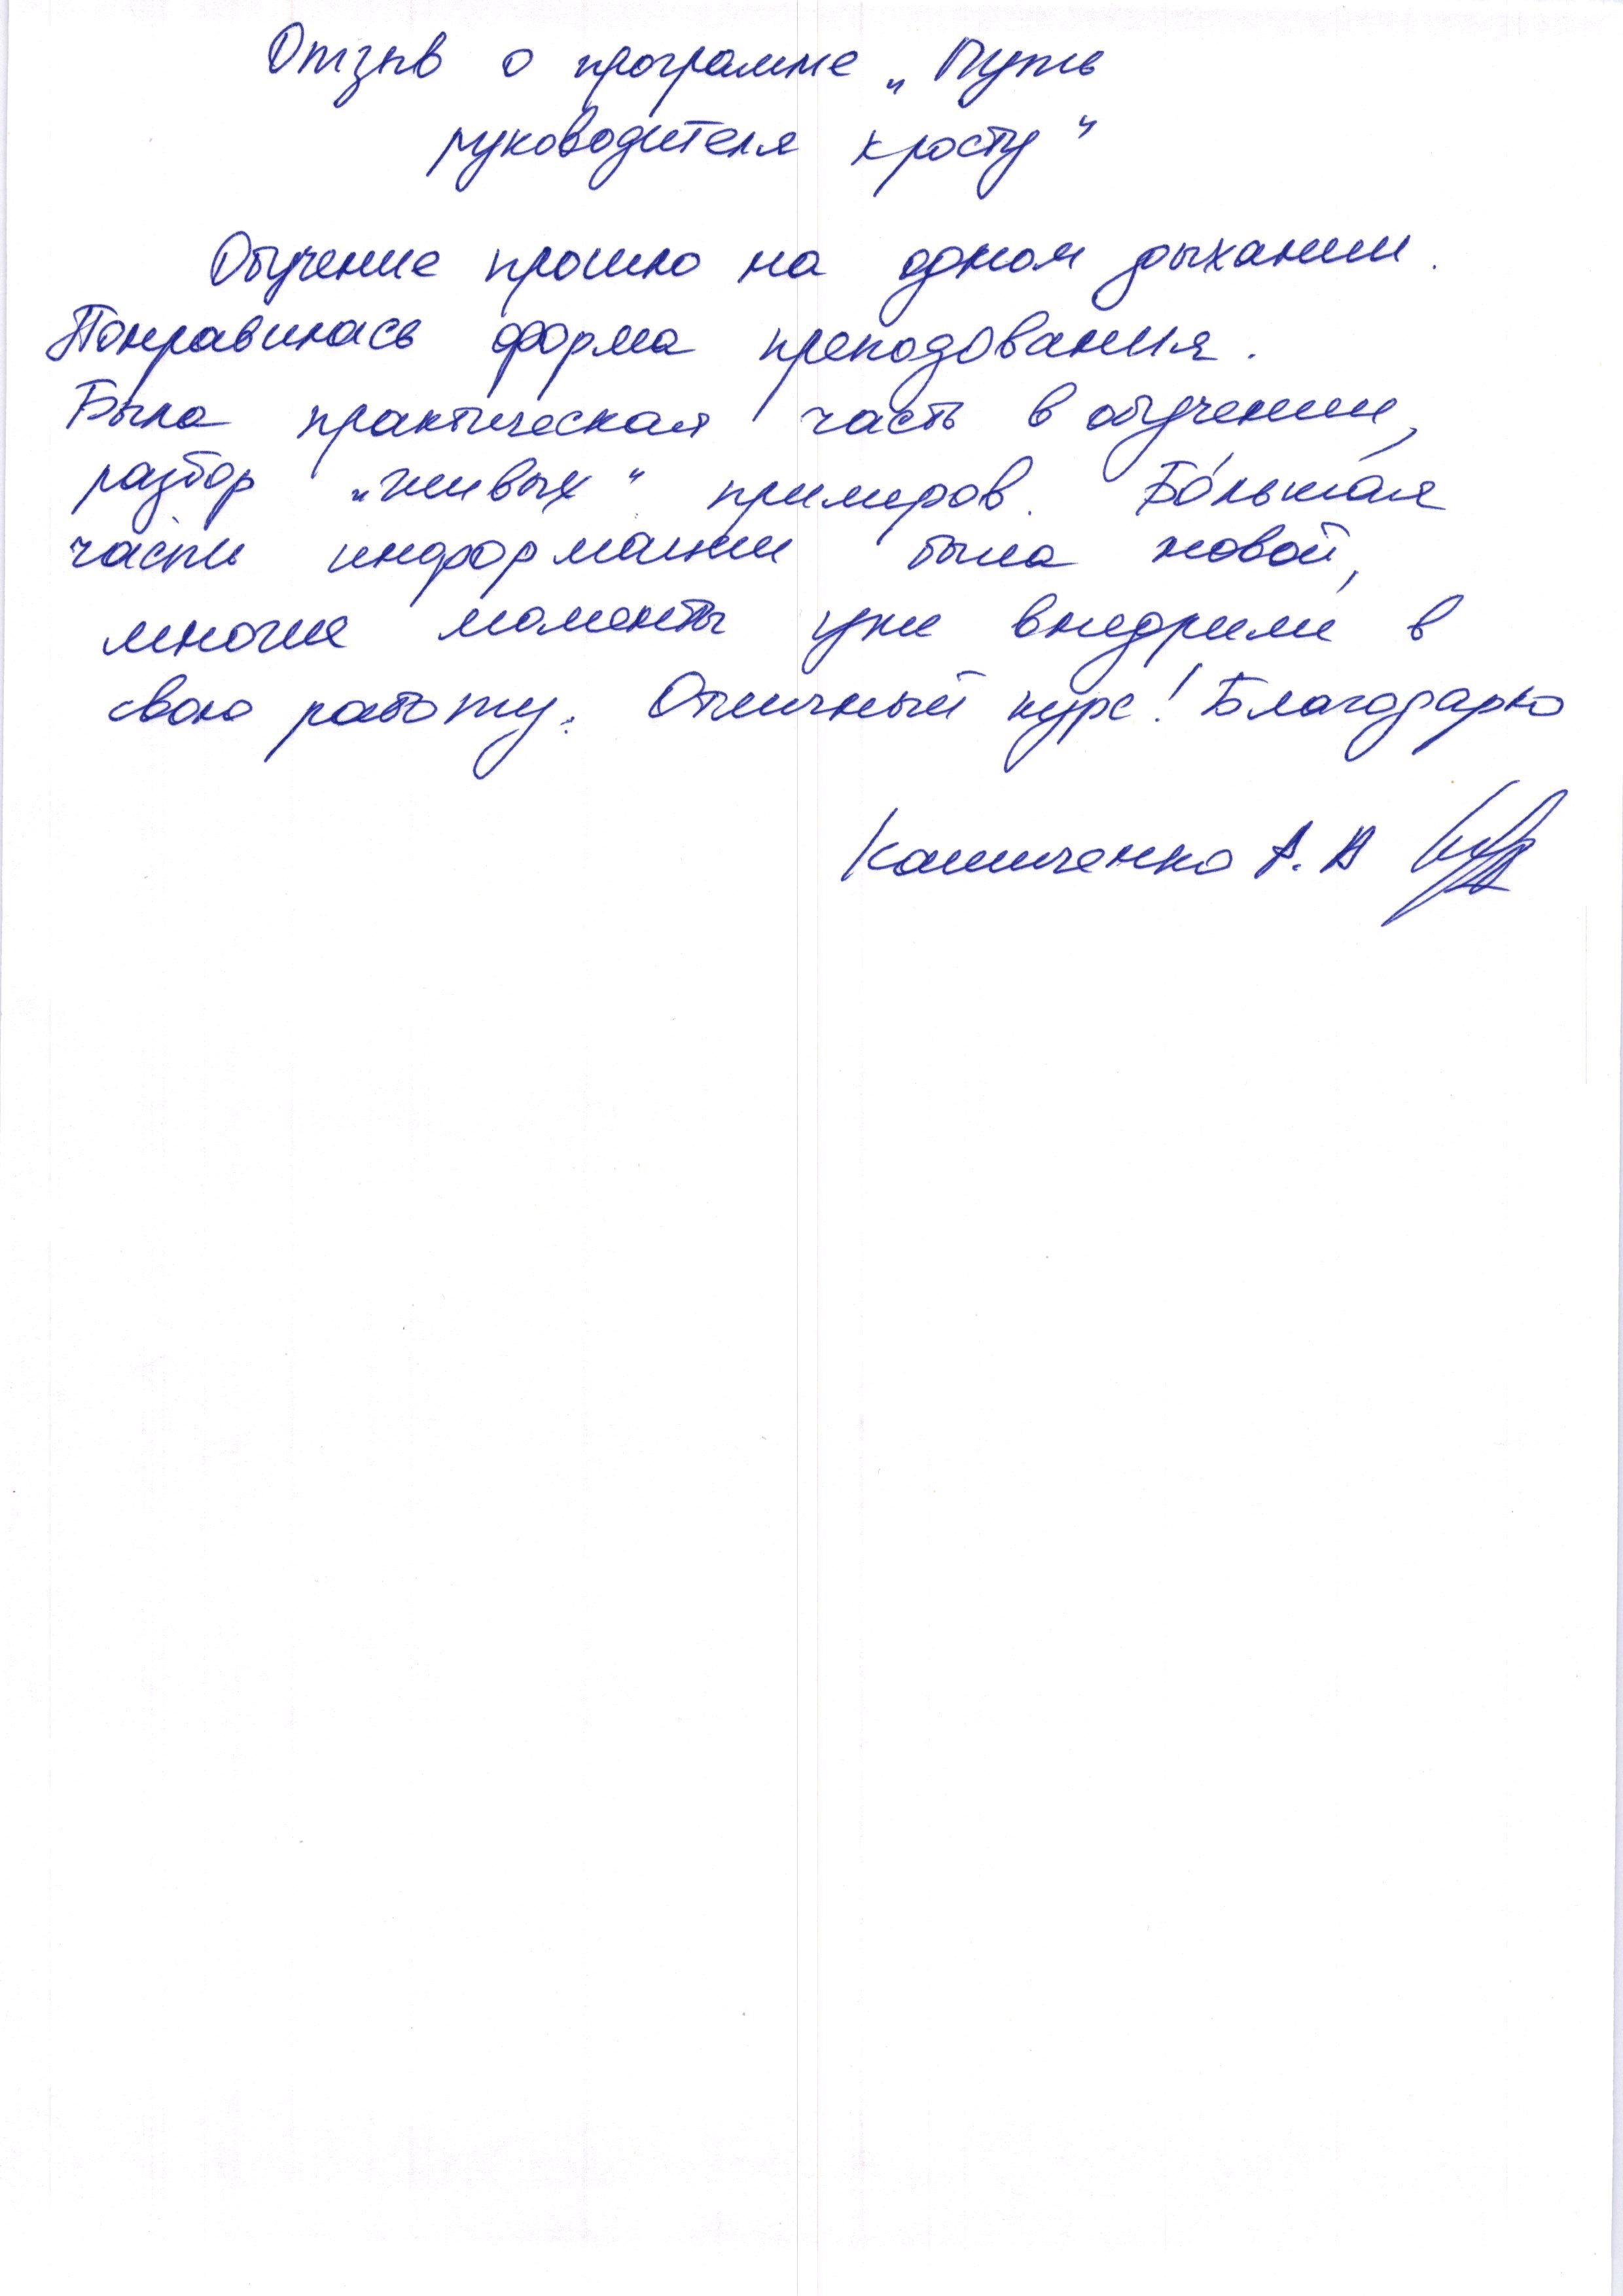 Отзыв о программе „Путь
руководителя к росту"
Обучение прошло на одном дыхании.
Понравилась форма преподования.
Была практическая часть в обучении,
разбор „живых" примеров. Бо́льшая
часть информации была новой,
многие моменты уже внедрили в
свою работу. Отличный курс! Благодарю
А. В